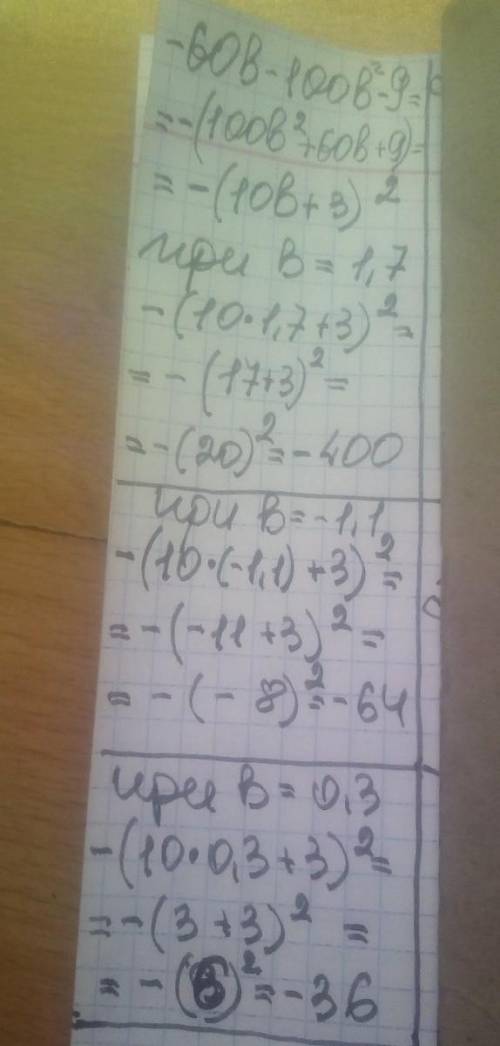 -60в-100в²-9=
=-(100в²+60в+9)=
=-(10в+3)²
при в=1,7
-(10·1,7+3)²=
=-(17+3)²=
=-(20)²=-400
при в=-1,1
-(10·(-1,1)+3)²=
=-(-11+3)²=
=-(-8)²=-64
при в=0,3
-(10·0,3+3)²=
=-(3+3)²=
=-(6)²=-36